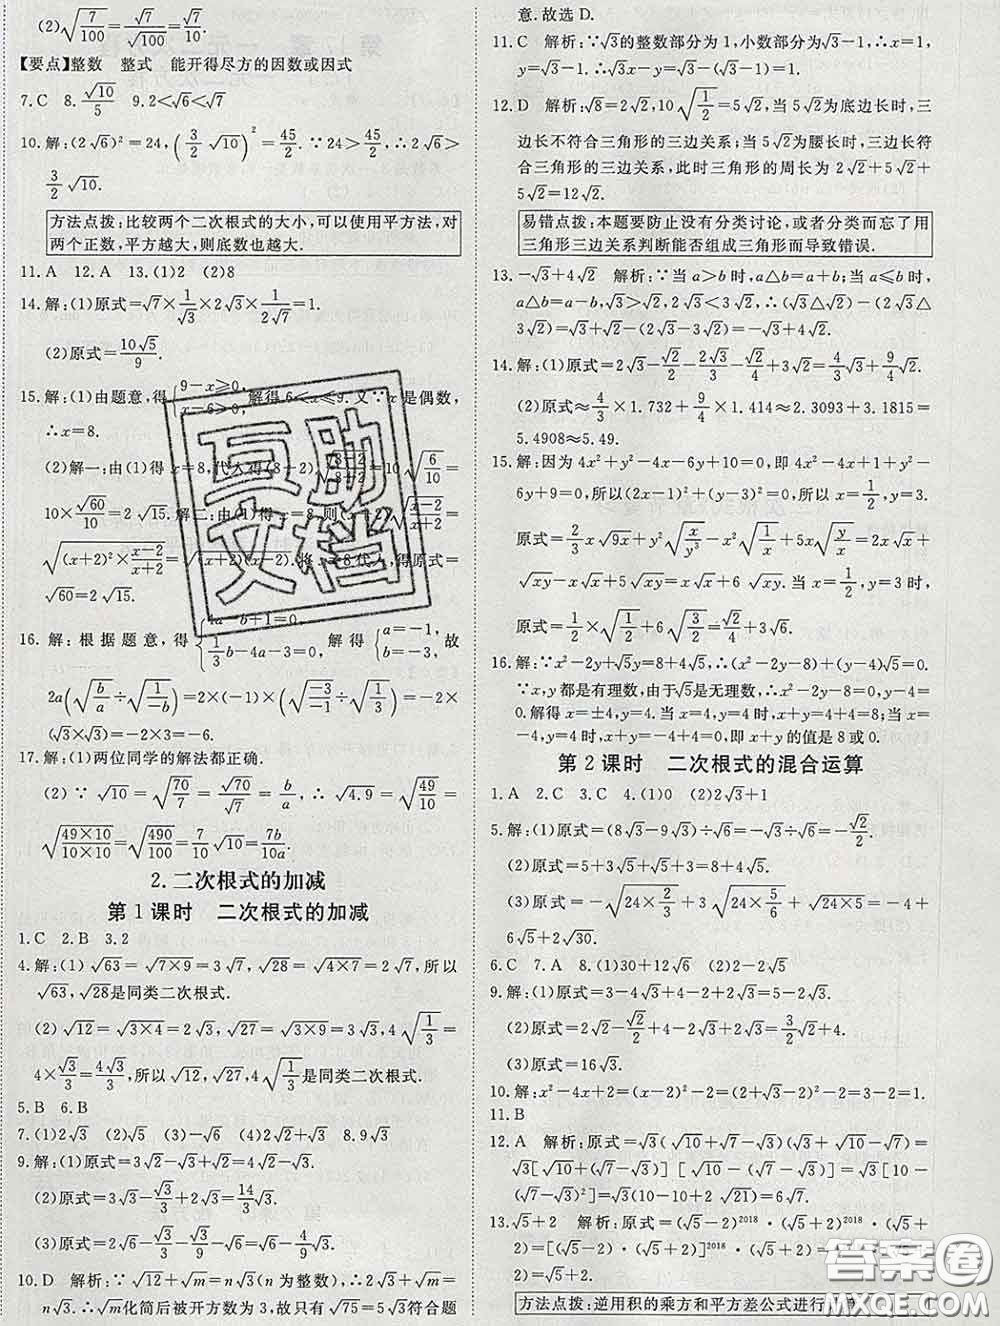 (2)√(7/100)=√7/√100=√7/10.
【要点】整数 整式 能开得尽方的因数或因式
7.C 8.√10/5 9.2<√6<√7
10.解:(2√6)²=24,(3/2 √10)²=45/2.∵24>45/2,∴2√6>
3/2 √10.
方法点拨:比较两个二次根式的大小,可以使用平方法,对
两个正数,平方越大,则底数也越大.
11.A 12.A 13.(1)2 (2)8
14.解:(1)原式=√7×1/√3×2√3×1/(2√7)=1.
(2)原式=10√5/9.
15.解:(1)由题意,得{9-x≥0, x-6>0,解得6<x≤9.又∵x是偶数,
∴x=8.
(2)解一:由(1)得x=8,代入得(8+2)√((8-2)/(8+2))=10√(6/10)=
10×√60/10=2√15.解二:由(1)得x=8,则(x+2)√((x-2)/(x+2))=
√((x+2)²×(x-2)/(x+2))=√((x+2)(x-2)).将x=8代入,得原式=
√60=2√15.
16.解:根据题意,得{4a-b+1=0, 1/3 b-4a-3=0,解得{a=-1, b=-3,故
2a(√(b/a)÷√(1/-b))=2×(-1)×(√(-3/-1)÷√(1/3))=-2×
(√3×√3)=-2×3=-6.
17.解:(1)两位同学的解法都正确.
(2)∵√10=√(70/7)=√70/√7=b/a,∴√4.9=√(49/10)=
√((49×10)/(10×10))=√(490/100)=7/10 √10=7b/10a.
2.二次根式的加减
第1课时 二次根式的加减
1.C 2.B 3.2
4.解:(1)√63=√(7×9)=3√7,√28=√(4×7)=2√7,所以
√63,√28是同类二次根式.
(2)√12=√(3×4)=2√3,√27=√(3×9)=3√3,4√(1/3)=
4×√3/3=4√3/3,所以√12,√27,4√(1/3)是同类二次根式.
5.B 6.B
7.(1)2√3 (2)√5 (3)-√6 (4)2√2+√3 8.9√3
9.解:(1)原式=3√2-√3+√2=4√2-√3.
(2)原式=3√3-√3/3+2√3=14/3 √3.
(3)原式=2√6-√3/3-√3/9-√6=√6-4/9 √3.
10.D 解析:∵√12+√m=n√3(n为整数),∴2√3+√m=
n√3.∴√m化简后被开方数为3,故只有√75=5√3符合题
意.故选D.
11.C 解析:∵√3的整数部分为1,小数部分为√3-1,∴x=1,
y=√3-1,∴√3x-y=√3-(√3-1)=1.
12.D 解析:√8=2√2,10√(1/2)=5√2,当5√2为底边长时,三
边长不符合三角形的三边关系;当5√2为腰长时,三边长符
合三角形的三边关系,此时三角形的周长为2√2+5√2+
5√2=12√2.
易错点拨:本题要防止没有分类讨论,或者分类而忘了用
三角形三边关系判断能否组成三角形而导致错误.
13.-√3+4√2 解析:∵当a>b时,a△b=a+b;当a≤b时,
a△b=a-b,√3>√2,2√3<3√2,∴(√3△√2)-(2√3△
3√2)=√3+√2-(2√3-3√2)=-√3+4√2.
14.解:(1)原式=2√3-√2/2-2√3/3-√2/4+3√2=4/3√3+9/4√2.
(2)原式≈4/3×1.732+9/4×1.414≈2.3093+3.1815=
5.4908≈5.49.
15.解:因为4x²+y²-4x-6y+10=0,即4x²-4x+1+y²-
6y+9=0,所以(2x-1)²+(y-3)²=0.所以x=1/2,y=3.
原式=2/3 x√9x+y²√(x/y³)-x²√(1/x)+5x√(y/x)=2x√x+
√xy-x√x+5√xy=x√x+6√xy.当x=1/2,y=3时,
原式=1/2×√(1/2)+6√(3/2)=√2/4+3√6.
16.解:∵x²-2y+√5y=8+4√5,∴(x²-2y-8)+√5(y-4)=0.
∵x,y都是有理数,由于√5是无理数,∴x²-2y-8=0,y-4=
0.解得x=±4,y=4.当x=4,y=4时,x+y=4+4=8;当x=
-4,y=4时,x+y=-4+4=0,即x+y的值是8或0.
第2课时 二次根式的混合运算
1.A 2.C 3.C 4.(1)0 (2)2√3+1
5.解:(1)原式=(8√3-9√3)÷√6=-√3÷√6=-√2/2.
(2)原式=5+√5+√5+3=8+4√5.
(3)原式=√(24×2/3)+3√(24×5/6)+√(24×5)=-4+
6√5+2√30.
6.C 7.A 8.(1)30+12√6 (2)2-2√5
9.解:(1)原式=3-4√3+4+2+2√3=9-2√3.
(2)原式=2√2-√2/2+4-4√2+2+4√2-4=3√2/2+2.
(3)原式=16√3.
10.解:x²-4x+2=(x-2)²-2=(2-√3-2)²-2=1.
11.B
12.A 解析:原式=√3(√3+√10-√7)(√3+√10-√7)=
√3[√10+(√3-√7)][√10-(√7-√3)]=√3[10-
(√7-√3)²]=√3(10-10+2√21)=6√7.
13.√5+2 解析:原式=(√5-2)²⁰¹⁸·(√5+2)²⁰¹⁸·(√5+
2)=[(√5-2)(√5+2)]²⁰¹⁸·(√5+2)=(5-4)²⁰¹⁸·
(√5+2)=√5+2.
方法点拨:逆用积的乘方和平方差公式进行
互助
文档
答案圈
MXQE.COM